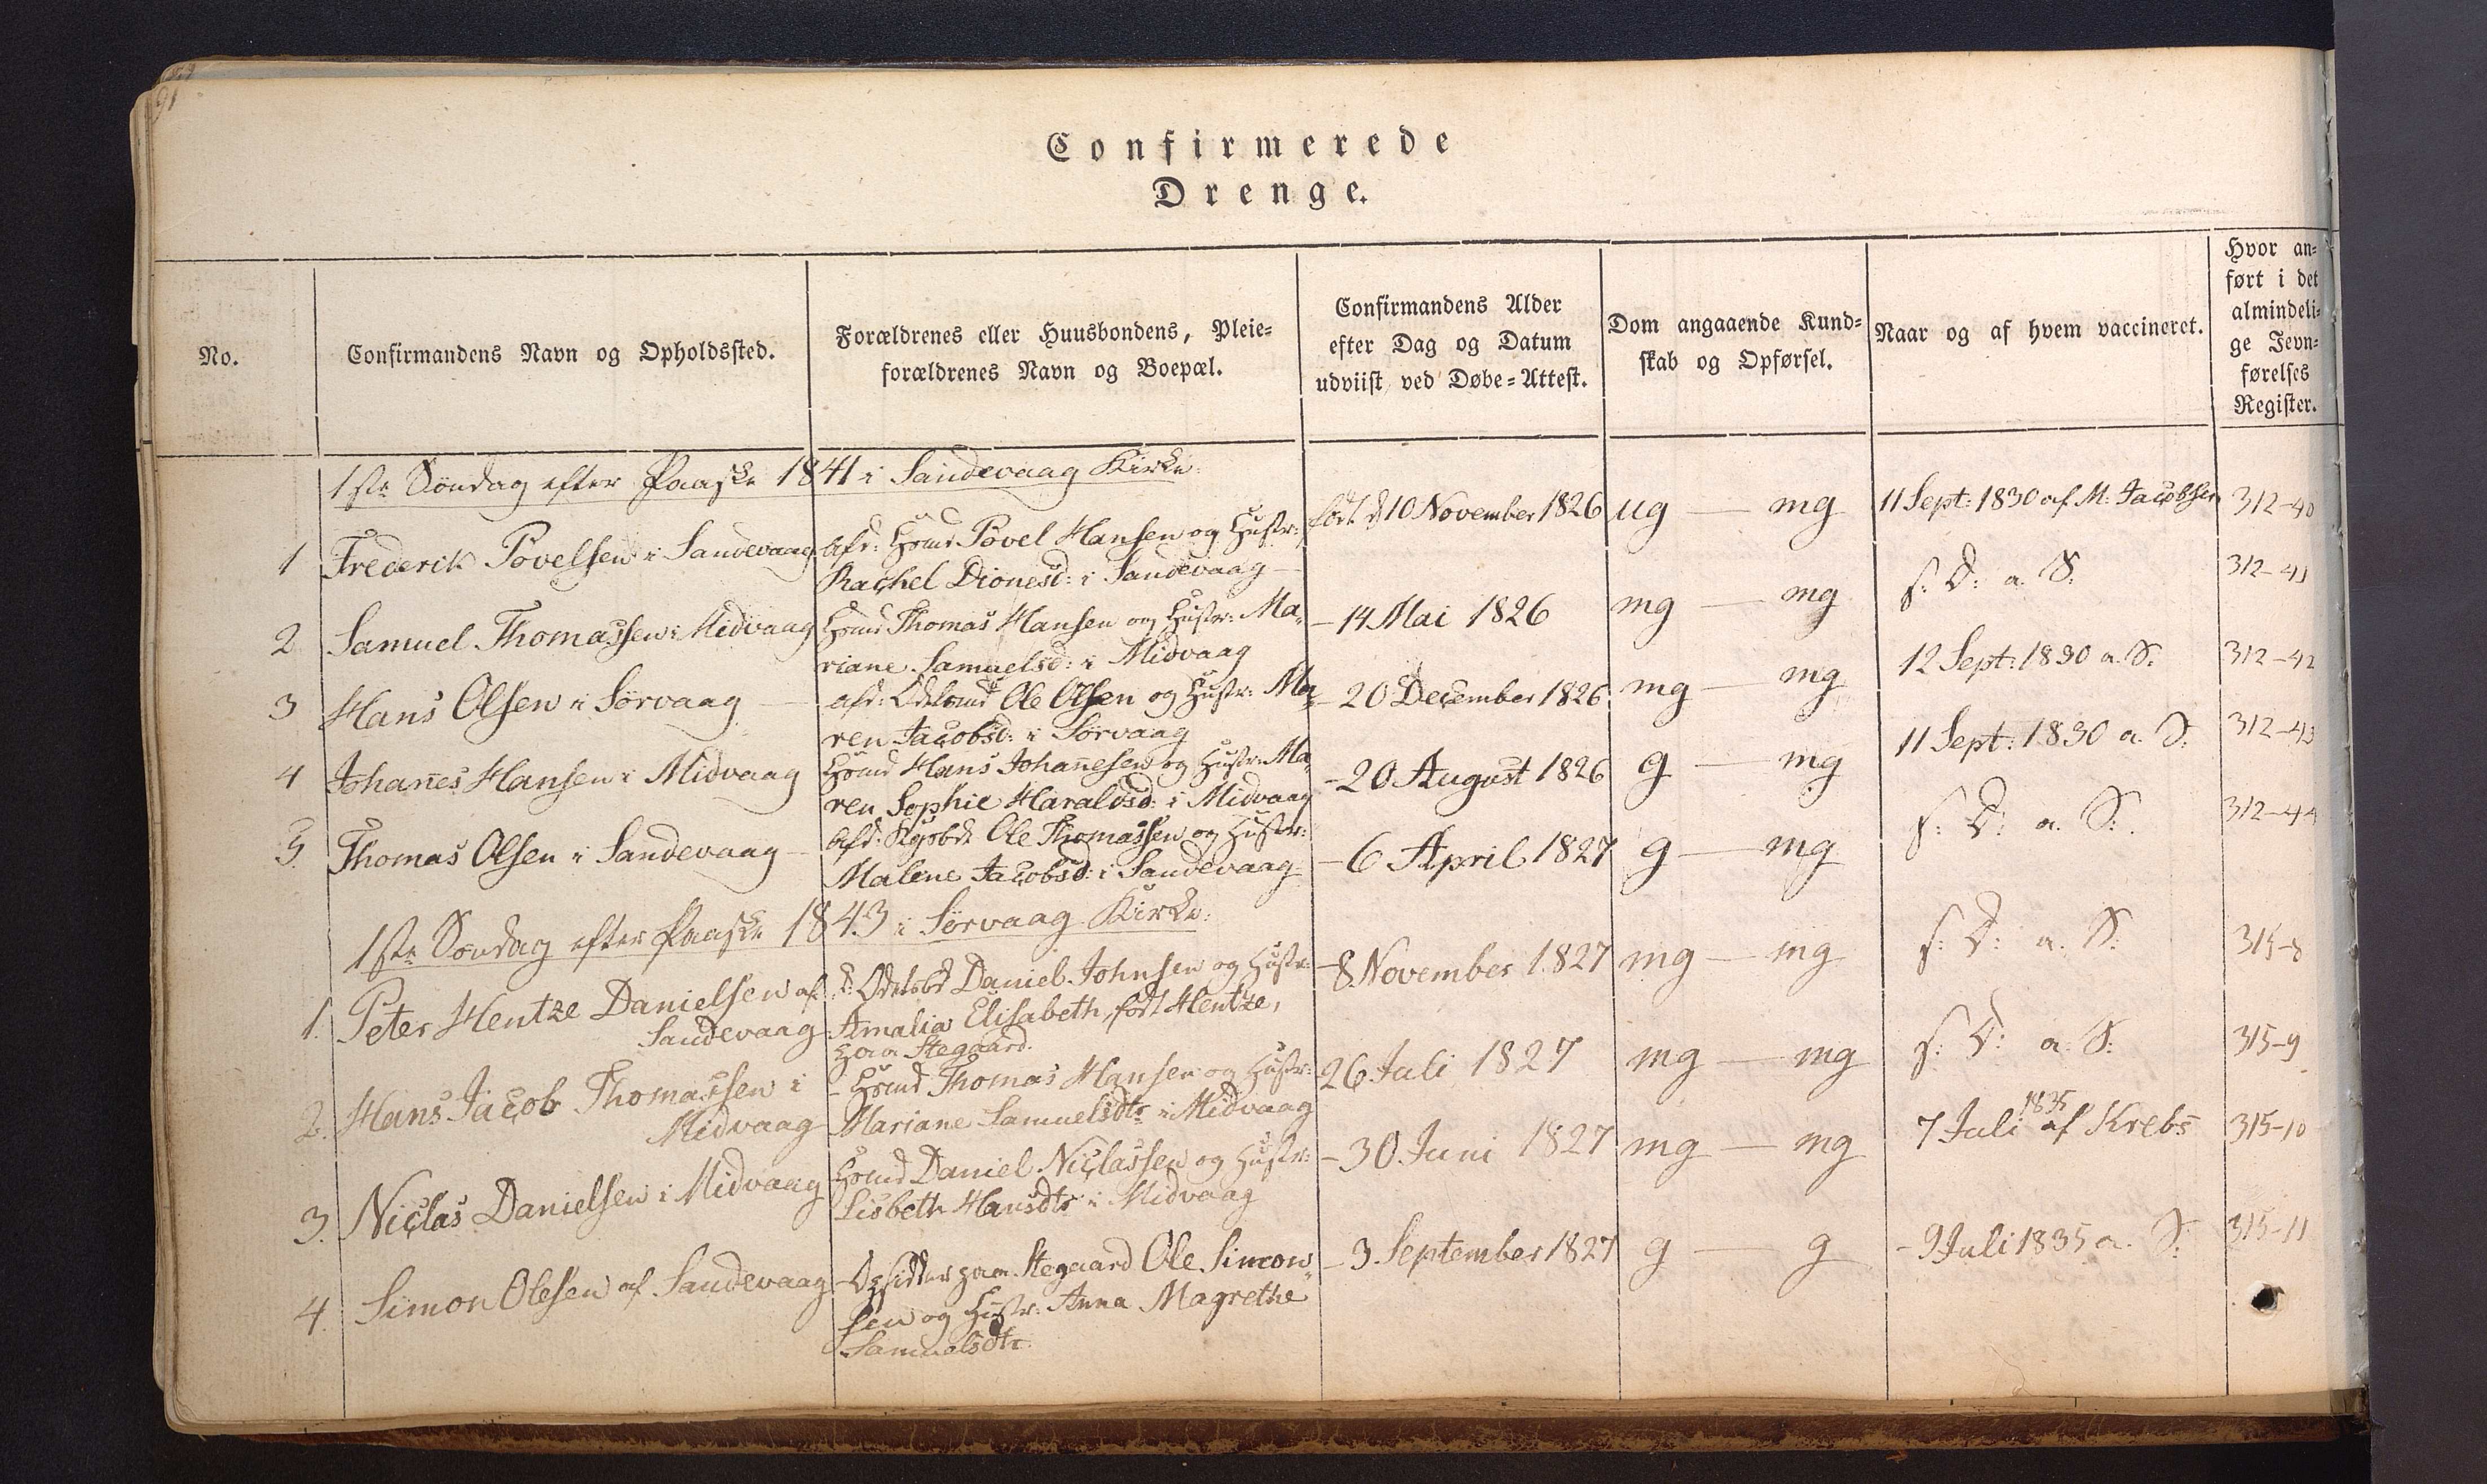 91
Confirmerede
Drenge.
No.
Confirmandens Navn og Opholdssted.
Forældrenes eller Huusbondens, Pleie=
forældrenes Navn og Boepæl.
Confirmandens Alder
efter Dag og Datum
udviist ved Døbe=Attest.
Dom angaaende Kund=
skab og Opførsel.
Naar og af hvem vaccineret.
Hvor an=
ført i det
almindeli=
ge Jevn=
førelses
Register.
1ste Søndag efter Paaske 1841 i Sandevaag Kirke.
1 Frederik Povelsen i Sandevaag
afd: Hsmd Povel Hansen og Hustr:
Rachel Dionesd: i Sandevaag
født d 10 November 1826
ug — mg
11 Sept: 1830 af M. Jacobsen
312-40
2 Samuel Thomassen i Midvaag
Hsmd Thomas Hansen og Hustr: Ma=
riane Samuelsd: i Midvaag
- 14 Mai 1826
mg — mg
s: D: a. S:
312-41
3 Hans Olsen i Sørvaag —
afd: Odelsmd Ole Olsen og Hustr: Ma=
ren Jacobsd: i Sørvaag
- 20 December 1826
mg — mg
12 Sept: 1830 a. S:
312-42
4 Johan̄es Hansen i Midvaag
Hsmd Hans Johan̄esen og Hustr: Ma=
ren Sophie Haraldsd: i Midvaag
- 20 August 1826
g — mg
11 Sept: 1830 a. S:
312-43
5. Thomas Olsen i Sandevaag —
afd: Kgsbd: Ole Thomassen og Hustr:
Malene Jacobsd: i Sandevaag
- 6 April 1827
g — mg
s: D: a. S:
312-44
1ste Søndag efter Paaske 1843 i Sørvaag Kirke.
1. Peter Hentze Danielsen af
Sandevaag
Odelsbd Daniel Johnsen og Hustr:
Amalia Elisabeth, født Hentze,
paa Stegaard.
- 8 November 1827
mg — mg
s: D: a. S:
315-8
2. Hans Jacob Thomassen i
Midvaag
- Hsmd Thomas Hansen og Hustr:
Mariane Samuelsdtr i Midvaag
26 Juli 1827
mg — mg
s: D: a. S:
315-9
3. Niclas Danielsen i Midvaag
Hsmd Daniel Niclassen og Hustr:
Lisbeth Hansdtr i Midvaag
- 30 Juni 1827
mg — mg
7 Juli 1835 af Krebs
315-10
4. Simon Olesen af Sandevaag
- Opsidder paa Stegaard Ole Simon=
sen og Hustr: Anna Magrethe
Samuelsdtr.
- 3 September 1827
g — g
- 9 Juli 1835 a. S:
315-11